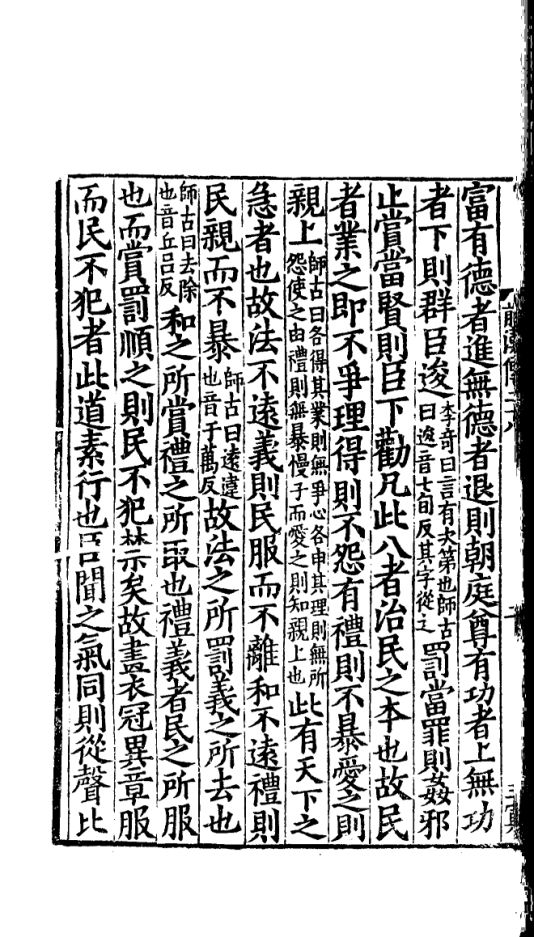 富有德者進無德者退則朝庭尊有功者上無功
者下則群臣逡李奇曰言有次第也師古曰逡音七旬反其字從辶罰當罪則姦邪
止賞當賢則臣下勸凡此八者治民之本也故民
者業之即不爭理得則不怨有禮則不暴愛之則
親上師古曰各得其業則無爭心各申其理則無所怨使之由禮則無暴慢子而愛之則知親上也此有天下之
急者也故法不遠義則民服而不離和不遠禮則
民親而不暴師古曰遠違也音于萬反故法之所罰義之所去也
師古曰去除也音丘呂反和之所賞禮之所取也禮義者民之所服
也而賞罰順之則民不犯禁矣故畫衣冠異章服
而民不犯者此道素行也臣聞之氣同則從聲比